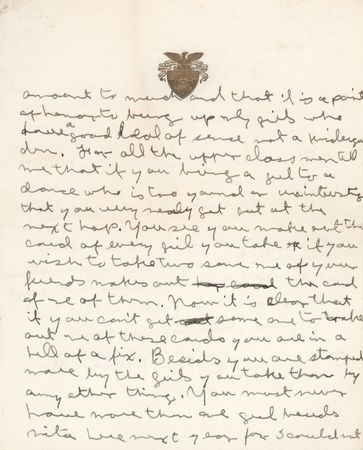 amount to much and that it is a point
of honor to bring up only girls who
have a good deal of sense not a
dom. For all the upper class men tell
me that if you bring a girl to a
dance who is too young or uninteresting
that you very rarely get out at the
next hop. You see you make out the
card of every girl you take & if you
wish to take two some one of your
friends makes out the card
of one of them. Now it is clear that
if you can't get some one to make
out one of those cards you are in a
hell of a fix. Besids you are stamped
more by the girls you take than by
any other thing. You must never
have more than one girl
here next year for I could not